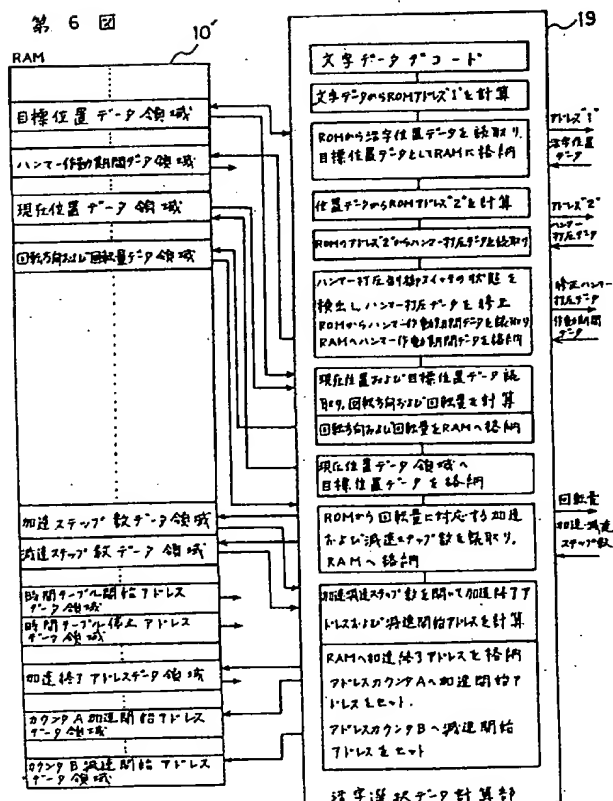 第6図
RAM
10'
目標位置データ領域
ハンマー作動期間データ領域
現在位置データ領域
回転方向および回転量データ領域
加速ステップ数データ領域
減速ステップ数データ領域
時間テーブル開始アドレス
データ領域
時間テーブル停止アドレス
データ領域
加速終了アドレスデータ領域
カウンタA加速開始アドレス
データ領域
カウンタB減速開始アドレス
データ領域
19
文字データデコード
文字データからROMアドレス"1"を計算
ROMから活字位置データを読取り,
目標位置データとしてRAMに格納
位置データからROMアドレス"2"を計算
ROMのアドレス"2"からハンマー打圧データを読取り
ハンマー打圧切換スイッチの状態を
検出し,ハンマー打圧データを修正
ROMからハンマー作動期間データを読取り
RAMへハンマー作動期間データを格納
現在位置および目標位置データ読
取り,回転方向および回転量を計算
回転方向および回転量をRAMへ格納
現在位置データ領域へ
目標位置データを格納
ROMから回転量に対応する加速
および減速ステップ数を読取り,
RAMへ格納
加速減速ステップ数を用いて加速終了ア
ドレスおよび減速開始アドレスを計算
RAMへ加速終了アドレスを格納
アドレスカウンタAへ加速開始ア
ドレスをセット.
アドレスカウンタBへ減速開始
アドレスをセット
活字選択データ計算部
アドレス"1"
活字位置
データ
アドレス"2"
ハンマー
打圧データ
修正ハンマー
打圧データ
作動期間
データ
回転量
加速・減速
ステップ数